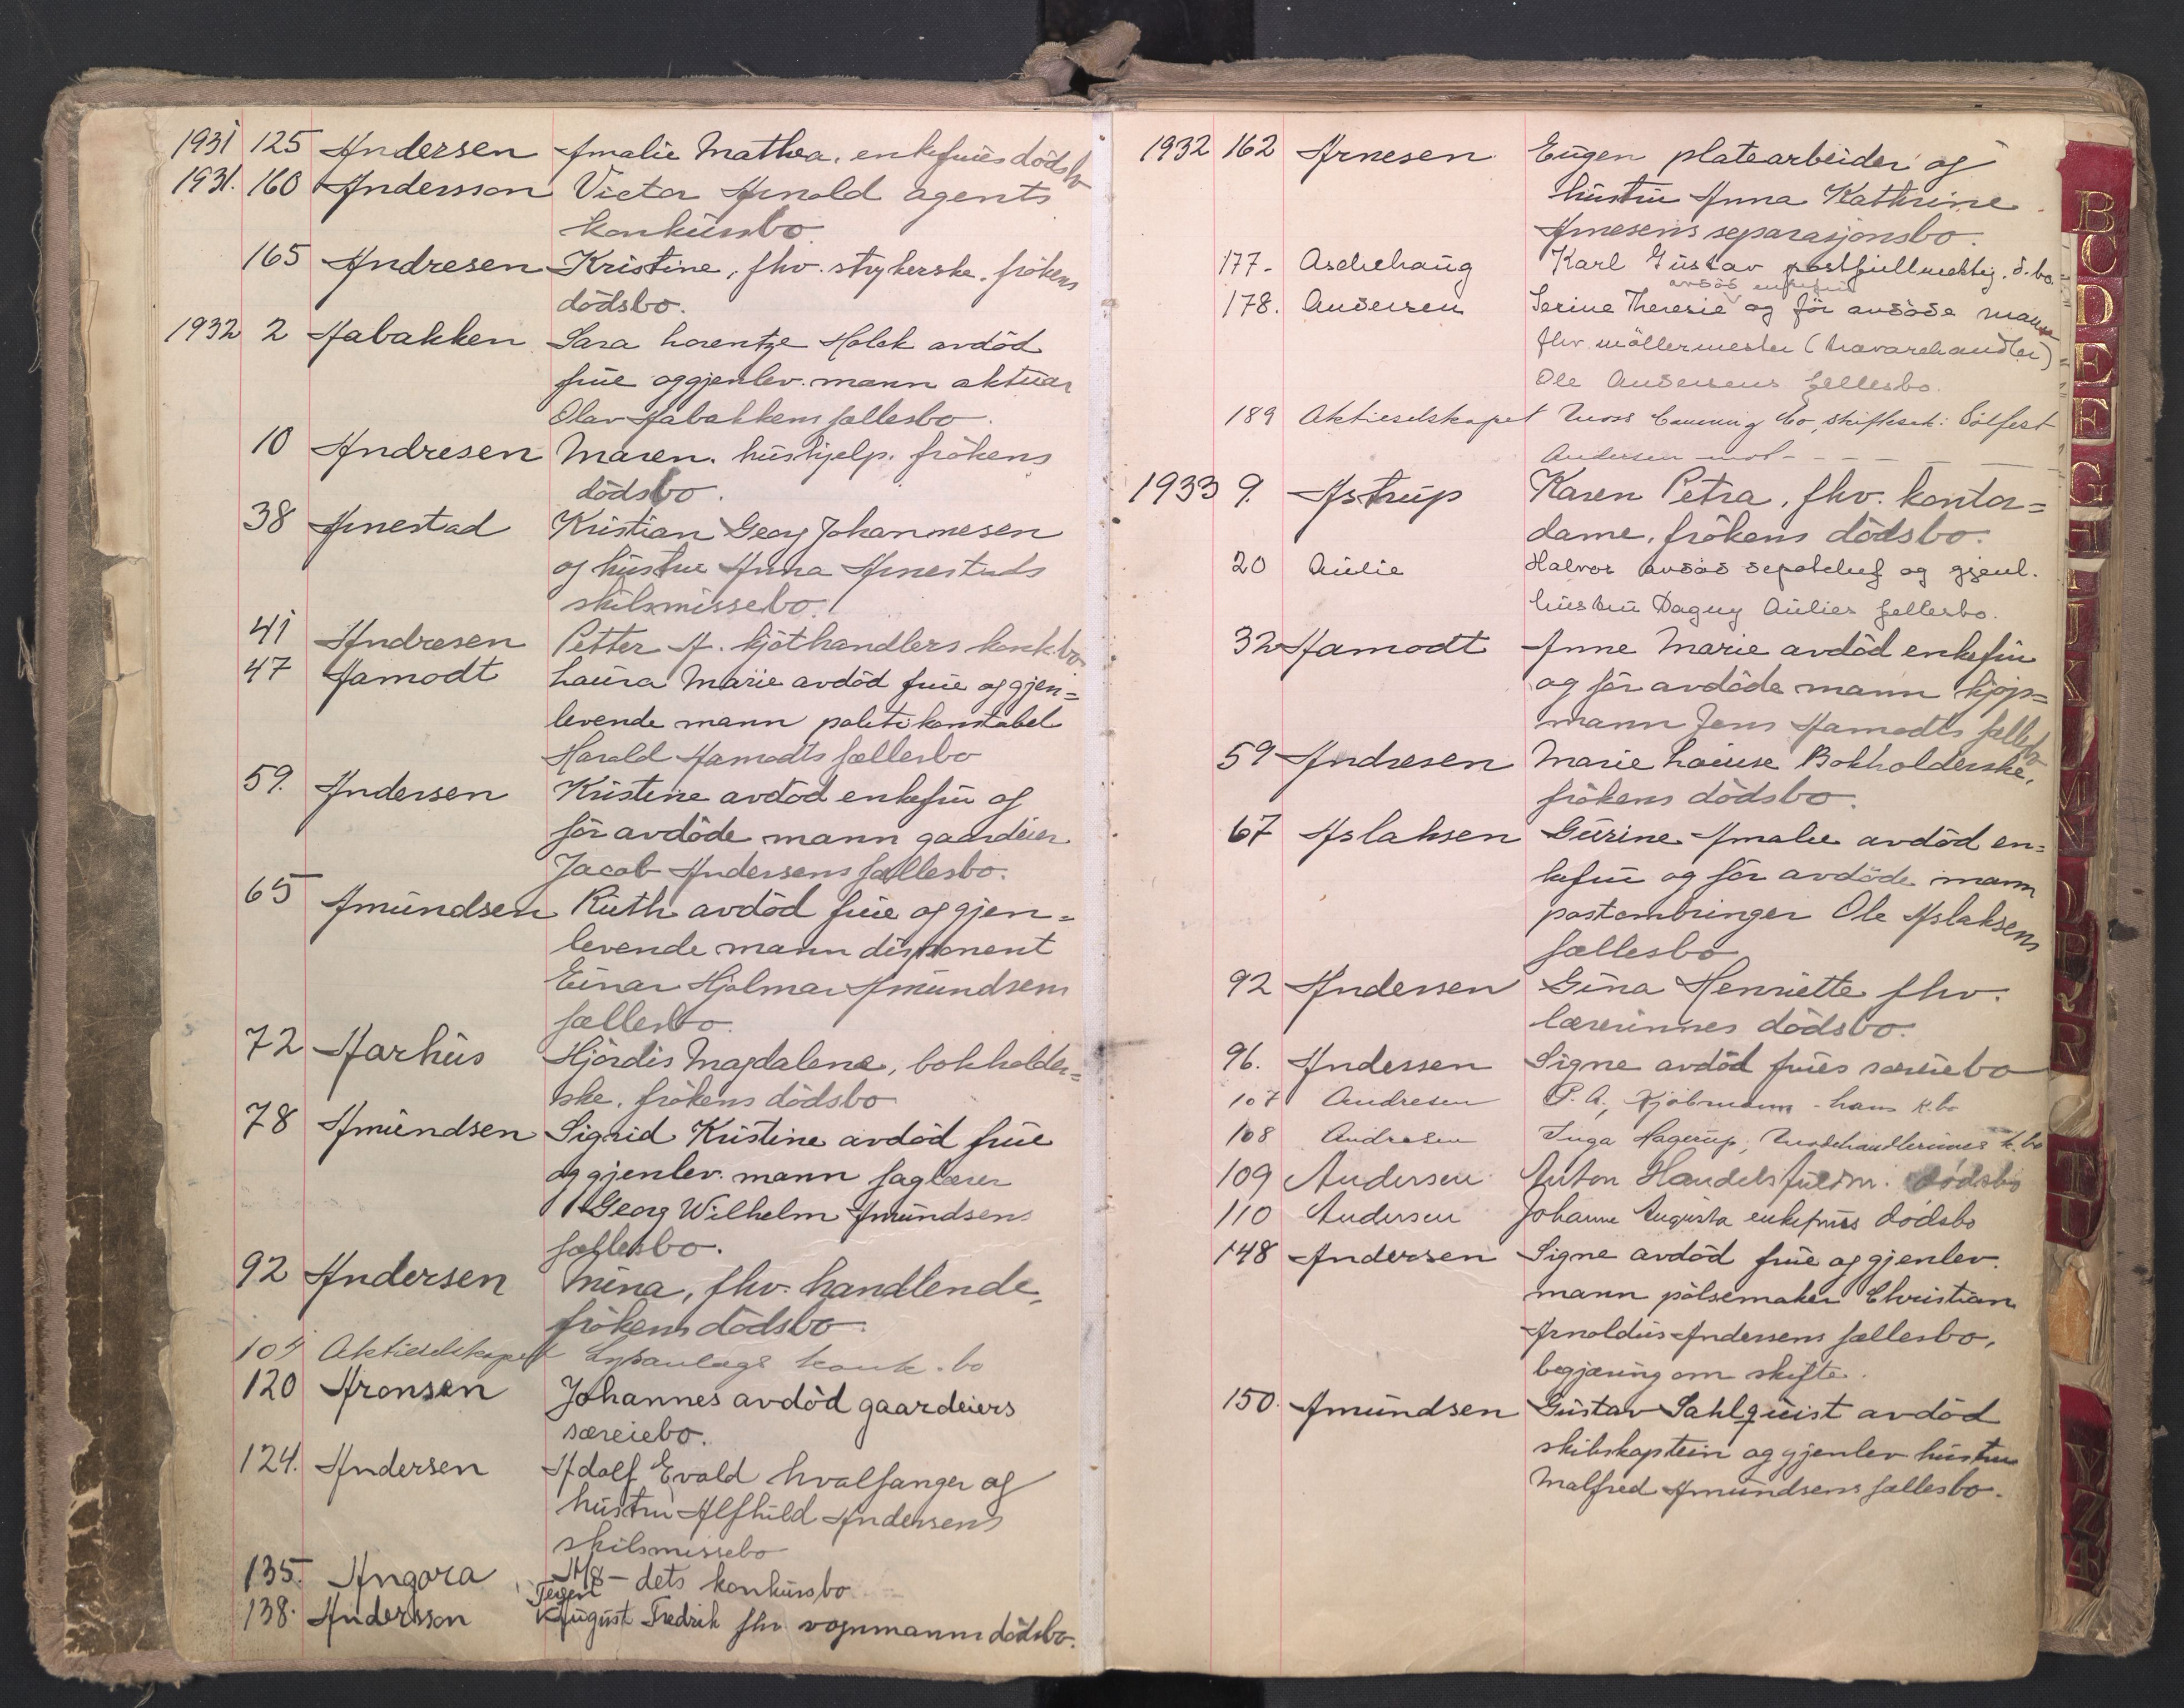 1931 125 Andersen Amalie Mathea, enkefrues dödsbo
1931. 160 Andersson Victor Arnold agents
konkursbo.
165 Andresen Kristine, fhv. strykerske, frökens
dödsbo.
1932 2 Aabakken Sara Lorentze Holck avdöd
frue og gjenlev. mann aktuar
Olav Aabakkens fællesbo
10 Andresen Maren. hushjelp. frökens
dödsbo.
38 Arnestad Kristian Georg Johannesen
og hustru Anna Arnestads
skilsmissebo.
41 Andresen Petter A. kjöthandlers konk.bo
47 Aamodt Laura Marie avdöd frue og gjen=
levende mann politikonstabel
Harald Aamodts fællesbo
59. Andersen Kristine avdöd enkefru og
för avdöde mann gaardeier
Jacob Andersens fællesbo.
65 Amundsen Ruth avdöd frue og gjen=
levende mann disponent
Einar Hjalmar Amundsens
fællesbo.
72 Aarhus Hjördis Magdalene, bokholder=
ske. frökens dödsbo
78 Amundsen Sigrid Kristine avdöd frue
og gjenlev. mann faglærer
Georg Wilhelm Amundsens
fællesbo.
92 Andersen Nina, fhv. handlende,
frökens dödsbo.
104 Aktieselskapet Lysanlegs konk.bo
120 Aronsen Johannes avdöd gaardeiers
særeiebo.
124. Andersen Adolf Evald hvalfanger og
hustru Alfhild Andersens
skilsmissebo
135. Angora A/S - dets konkursbo
138. Andersson August Fredrik fhv. vognmanns dödsbo.
1932 162 Arnesen Eugen platearbeider og
hustru Anna Kathrine
Arnesens separasjonsbo.
177. Aschehaug Karl Gustav postfullmektig. d.bo
avdöd enkefru
178. Andersen Serine Theresie og för avdöde mann
fhv. möllermester (travarehandler)
Ole Andersens fellesbo.
189 Aktieselskapet Moss Canning Co, skiftesak: Sölfest
Andersen mot - - - -
1933 9. Astrup Karen Petra, fhv. kontor=
dame, frökens dödsbo.
20 Aulie Halvor avdöd depotchef og gjenl.
hustru Dagny Aulies fellesbo.
32 Aamodt Anne Marie avdöd enkefru
og för avdöde mann kjøp=
mann Jens Aamodts fællesbo
59 Andresen Marie Louise Bokholderske,
frökens dödsbo.
67 Aslaksen Gurine Amalie avdöd en=
kefru og för avdöde mann
postombringer Ole Aslaksens
fællesbo
92 Andersen Gina Henriette fhv.
lærerinnes dödsbo.
96. Andersen Signe avdöd frues særeiebo
107 Andresen P. A., Kjöbmann - hans k.bo
108 Andresen Inga Hagerup, Motehandlerinnes k.bo
109 Andersen Anton Handelsfuldm. dödsbo
110 Andersen Johanne Augusta enkefrues dödsbo
148 Andersen Signe avdöd frue og gjenlev.
mann pölsemaker Christian
Arnoldus Andersens fællesbo,
begjæring om skifte.
150. Amundsen Gustav Sahlquist avdöd
skibskaptein og gjenlev hustru
Malfred Amundsens fællesbo.
B
C
D
E
F
G
H
I
J
K
L
M
N
O
P
R
T U
Y Z